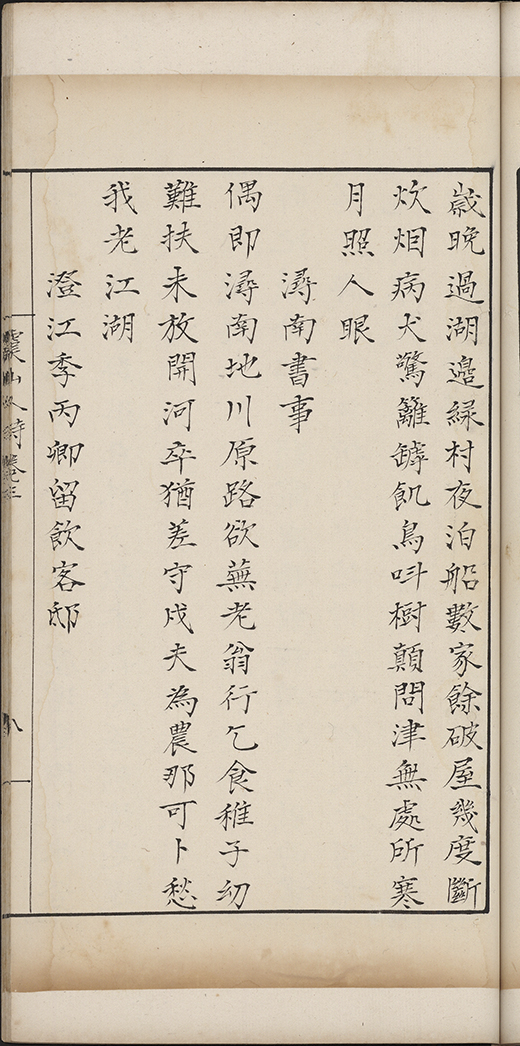 歲晚過湖邊綠村夜泊船數家餘破屋幾度斷
炊烟病犬驚籬罅飢鳥呌樹顛問津無處所寒
月照人眼
潯南書事
偶即潯南地川原路欲蕪老翁行乞食稚子幼
難扶未放開河卒猶差守戍夫為農那可卜愁
我老江湖
澄江季丙卿留飲客邸
山人詩卷三
八